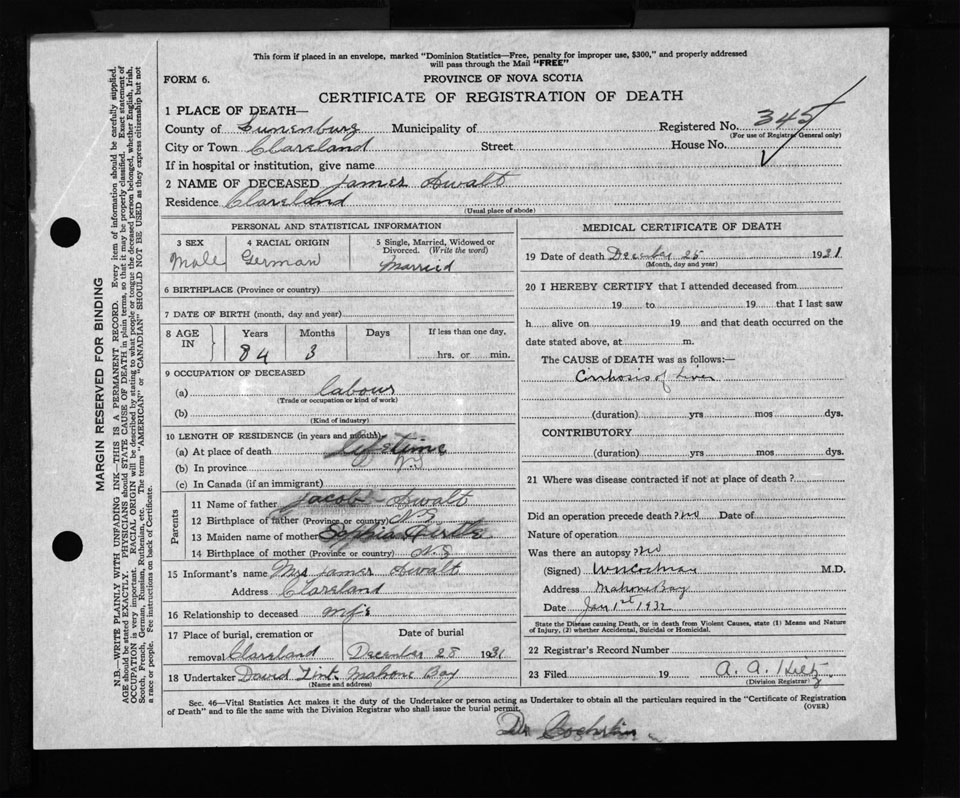 This form if placed in an envelope, marked "Dominion Statistics—Free, penalty for improper use, $300," and properly addressed
will pass through the Mail "FREE"
FORM 6.
PROVINCE OF NOVA SCOTIA
CERTIFICATE OF REGISTRATION OF DEATH
1 PLACE OF DEATH—
County of Lunenburg Municipality of Registered No. 345
(For use of Registrar General only)
City or Town Clareland Street House No.
If in hospital or institution, give name
2 NAME OF DECEASED James Awalt
Residence Clareland
(Usual place of abode)
PERSONAL AND STATISTICAL INFORMATION
3 SEX 4 RACIAL ORIGIN 5 Single, Married, Widowed or Divorced. (Write the word)
Male German Married
6 BIRTHPLACE (Province or country)
7 DATE OF BIRTH (month, day and year)
8 AGE IN Years Months Days If less than one day,
84 3 hrs. or min.
9 OCCUPATION OF DECEASED
(a) labour
(Trade or occupation or kind of work)
(b)
(Kind of industry)
10 LENGTH OF RESIDENCE (in years and months)
(a) At place of death lifetime
(b) In province N.S
(c) In Canada (if an immigrant)
Parents
11 Name of father Jacob Awalt
12 Birthplace of father (Province or country) N S
13 Maiden name of mother Sophia
14 Birthplace of mother (Province or country) N.S
15 Informant's name Mrs James Awalt
Address Clareland
16 Relationship to deceased
17 Place of burial, cremation or removal Clareland
Date of burial
December 28 1931
18 Undertaker David Mahone Bay
(Name and address)
MEDICAL CERTIFICATE OF DEATH
19 Date of death December 25 1931
(Month, day and year)
20 I HEREBY CERTIFY that I attended deceased from
19 to 19 that I last saw
h alive on 19 and that death occurred on the
date stated above, at m.
The CAUSE of DEATH was as follows:—
Cirrhosis of Liver
(duration) yrs mos dys.
CONTRIBUTORY
(duration) yrs mos dys.
21 Where was disease contracted if not at place of death?
Did an operation precede death? no Date of
Nature of operation
Was there an autopsy? no
(Signed) M.D.
Address Mahone Bay
Date Jan 1st 1932
State the Disease causing Death, or in death from Violent Causes, state (1) Means and Nature
of Injury, (2) whether Accidental, Suicidal or Homicidal.
22 Registrar's Record Number
23 Filed 19 A. A. Hiltz
(Division Registrar)
Sec. 46—Vital Statistics Act makes it the duty of the Undertaker or person acting as Undertaker to obtain all the particulars required in the "Certificate of Registration
of Death" and to file the same with the Division Registrar who shall issue the burial permit.
(OVER)
Dr
MARGIN RESERVED FOR BINDING
N.B.—WRITE PLAINLY WITH UNFADING INK—THIS IS A PERMANENT RECORD. Every item of information should be carefully supplied.
AGE should be stated EXACTLY. PHYSICIANS should STATE CAUSE OF DEATH in plain terms, so that it may be properly classified. Exact statement of
OCCUPATION is very important. RACIAL ORIGIN will be described by stating to what people or tongue the deceased person belonged, whether English, Irish,
Scotch, French, German, Russian, Ruthenian, etc. The terms "AMERICAN" or "CANADIAN" SHOULD NOT BE USED as they express citizenship but not
a race or people. See instructions on back of Certificate.